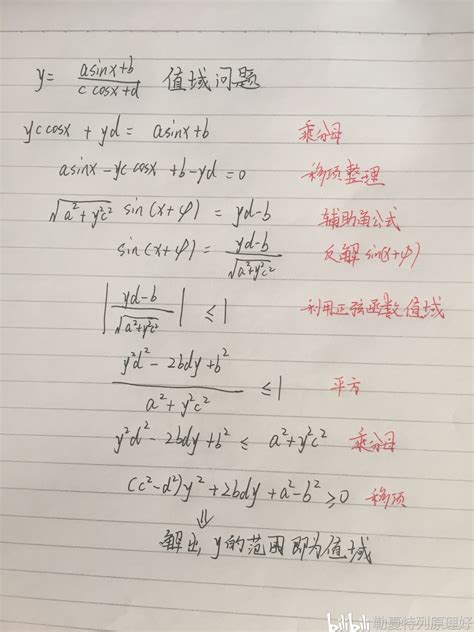 y= asinx+b / c cosx+d 值域问题
yc cosx + yd = asinx+b 乘分母
asinx-yc cosx +b-yd=0 移项整理
√a²+y²c² sin(x+φ) = yd-b 辅助角公式
sin(x+φ) = yd-b / √a²+y²c² 反解 sin(x+φ)
| yd-b / √a²+y²c² | ≤1 利用正弦函数值域
y²d²-2bdy+b² / a²+y²c² ≤1 平方
y²d²-2bdy+b² ≤ a²+y²c² 乘分母
(c²-d²)y²+2bdy+a²-b²≥0 移项
⇓
解出 y的范围即为值域
bilibili 勒夏特列原理好